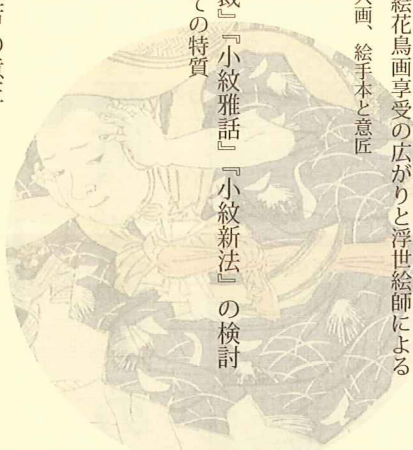 絵花鳥画享受の広がりと浮世絵師による
人画、絵手本と意匠
裁』『小紋雅話』『小紋新法』の検討
ての特質